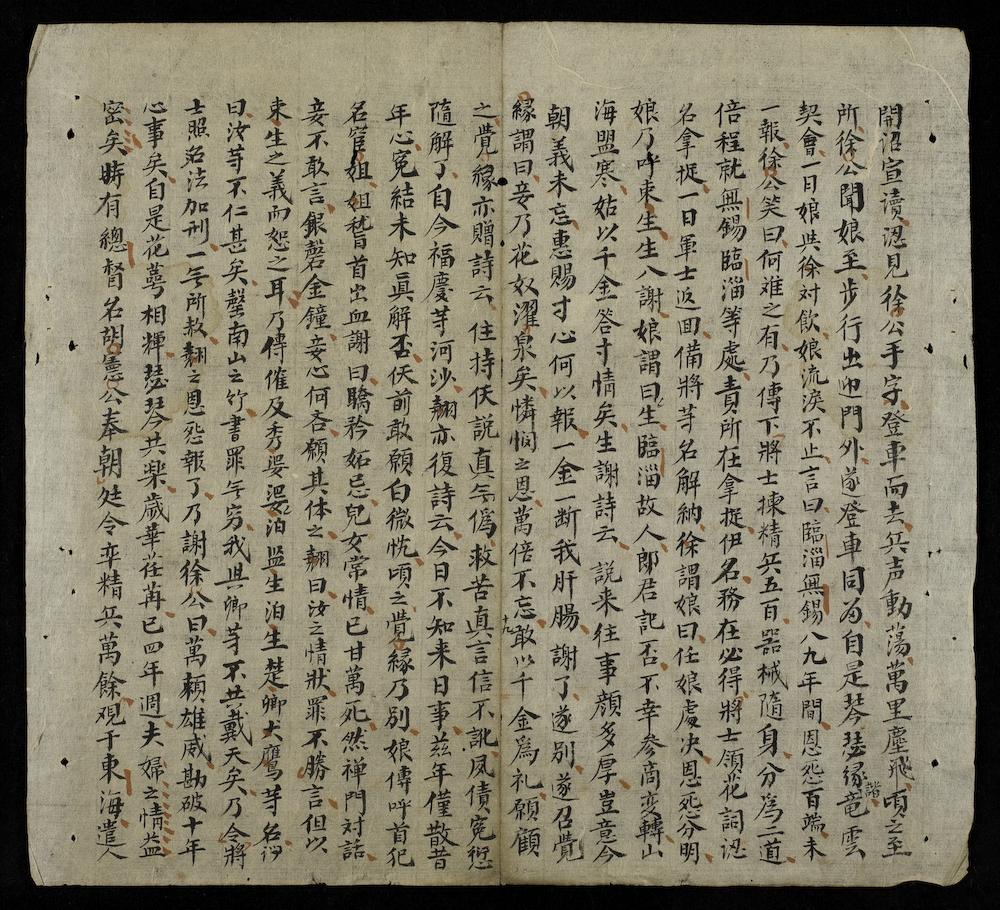 開沼宣讀認見徐公手字登車而去兵声動蕩萬里塵飛頃之至
所徐公聞娘至步行出迎門外遂登車同為自是琴瑟緣諧竜雲
契會一日娘與徐対飲娘流淚不止言曰臨淄無錫八九年間恩怨百端未
一報徐公笑曰何难之有乃傳下將士揀精兵五百器械隨身分爲二道
倍程就無錫臨淄等處責所在拿捉伊名務在必得將士領花詞認
名拿捉一日軍士返回備將芓名解納徐謂娘曰任娘處决恩怨分明
娘乃呼束生生八謝娘謂曰生臨淄故人郎君記否不幸參商变轉山
海盟寒姑以千金答寸情矣生謝詩云說来往事顔多厚豈意今
朝義未忘惠賜寸心何以報一金一断我肝腸謝了遂別遂召覺
緣謂曰妾乃花奴濯泉矣憐悯之恩萬倍不忘敢以千金爲礼願顧
之覺緣亦贈詩云住持伕説真᠁爲救苦真言信不訛夙債宽愆
隨解了自今福慶芓河沙翹亦復詩云今日不知来日事兹年僅散昔
年心冤結未知眞解否伕前敢願白微忱頃之覺緣乃別娘傳呼首犯
名宦姐姐嵆首出血謝曰驕矜妬忌兒女常情已甘萬死然禅門対話
妾不敢言銀磬金鐘妾心何吝願其体之翹曰汝之情狀罪不勝言但以
束生之義而恕之耳乃傳催及秀婆婆泊监生泊生楚卿犬鷹芓名
曰汝芓不仁甚矣罄南山之竹書罪无穷我與卿芓不共戴天矣乃令將
士照名法加刑一无所赦翹之恩怨報了乃謝徐公曰萬頼雄威勘破十年
心事矣自是花萼相輝瑟琴共楽歲華荏苒已四年週夫婦之情益
密矣時有總督名胡憲公奉朝廷令率精兵萬餘观于東海遣人